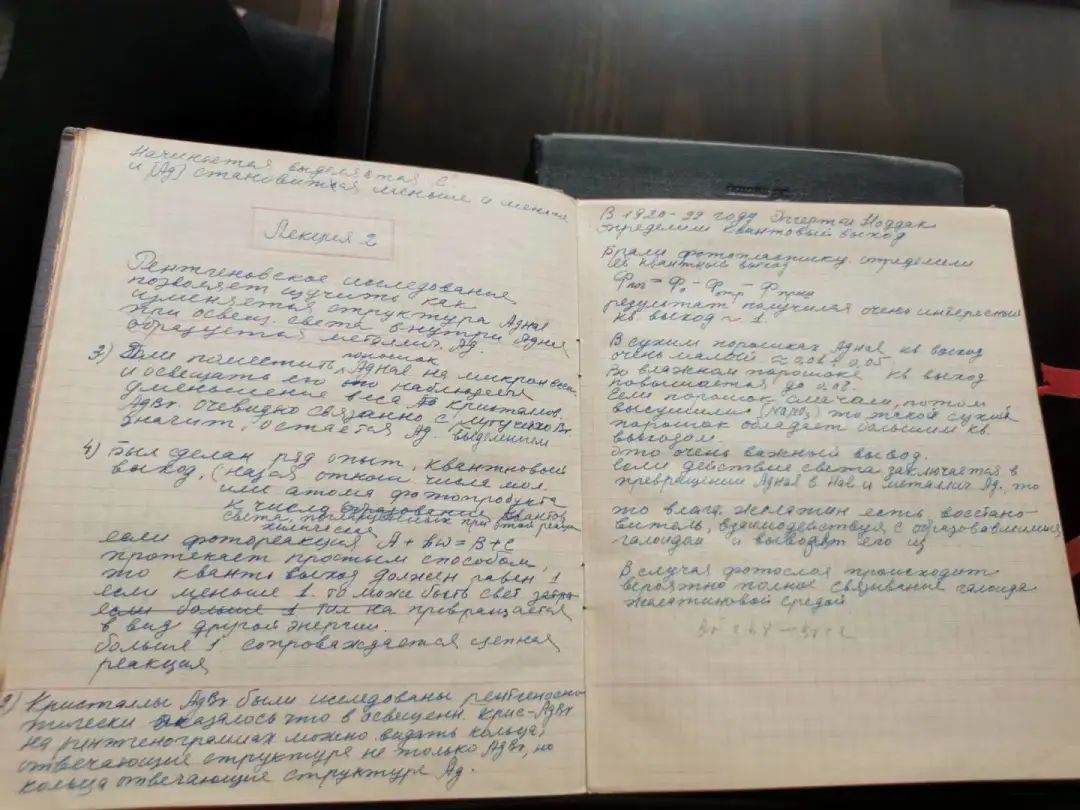 Начинается выделяться
и [Ag] становится меньше и меньше
Лекция 2
Рентгеновское исследование
позволяет изучить как
изменяется структура AgHal
при освещ. света внутри AgHal
образуется металлич. Ag.
3) Если поместить порошок AgHal на микровесы
и освещать его то наблюдается
уменьшение веса кристаллов
AgBr. Очевидно связанно с летучестью Br
значит, остаётся Ag. выделением
4) Был сделан ряд опыт. квантновый
выход, (назыв отнош числа мол.
или атома фотопродукта
к числу квантов
света, поглощенных при этой реак
химическая
если фотореакция A + hω = B + C
протекает простым способом,
то квантв выход должен равен 1
если меньше 1. то може быть свет
если больше 1 то превращается
в вид другой энергии.
больше 1 сопровождается цепная
реакция
2) Кристаллы AgBr были исследованы рентгеноско
пически оказалось что в освещенн. крис-AgBr
на рентженограммах можно видать кольца,
отвечающие структуре не только AgBr, но
кольца отвечающие структуре Ag.
В 1920-22 году Эггерт и Ноддак
определили квантовый выход
Брали фотопластинку определили
её квантный выход
Φпл = Φ₀ - Φотр - Φпрош
результат получился очень интересный
кв. выход ~ 1.
В сухим порошках AgHal кв выход
очень малой ≈ 0,04 ÷ 0,05
Во влажном порошоке кв выход
повышается до
если порошок смачали, потом
высушили (NaNO₂) то такой сухий
порошок обладает большим кв.
выходом.
Это очень важный вывод.
если действие света заключается в
превращении AgHal в Hal и металлич Ag, то
то влаг. желатин есть восстано-
витель, взаимодействуя с образовавшимися
галоидом и выводят его
В случая фотослоя происходит
вероятно полное связывание галоида
желатиновой средой